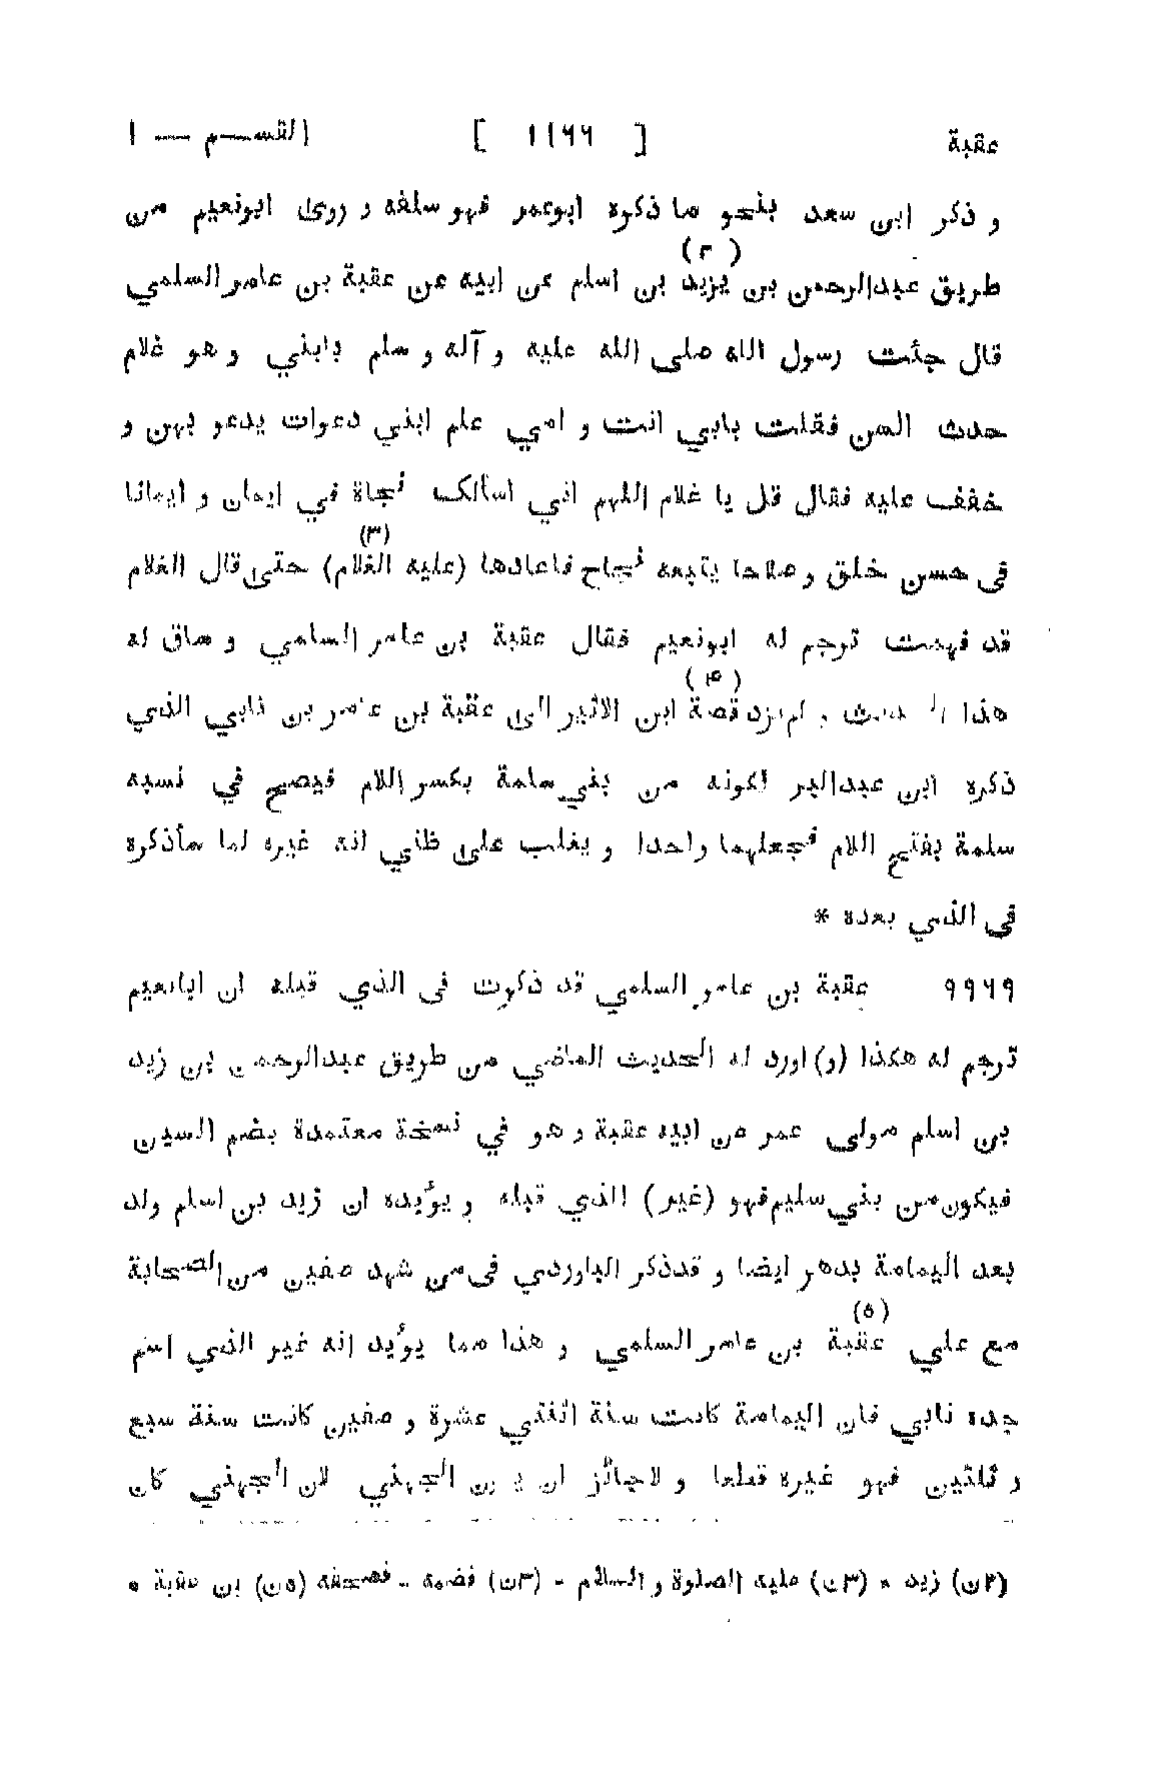 عقبة [ ١١٦٦ ] القسم — ١
و ذكر ابن سعد بنحو ما ذكره ابوعمر فهو سلفه و روى ابونعيم من
(٢)
طريق عبدالرحمن بن يزيد بن اسلم عن ابيه عن عقبة بن عامر السلمي
قال جئت رسول الله صلى الله عليه و آله و سلم بابني و هو غلام
حدث السن فقلت بابي انت و امي علم ابني دعوات يدعو بهن و
خفف عليه فقال قل يا غلام اللهم اني اسألك نجاة في ايمان و ايمانا
(٣)
فى حسن خلق و صلاحا يتبعه نجاح فاعادها (عليه الغلام) حتى قال الغلام
قد فهمت ترجم له ابونعيم فقال عقبة بن عامر السلمي و ساق له
(۴)
هذا الحديث و لم يزد قصة ابن الاثير الى عقبة بن عامر بن نابي الذي
ذكره ابن عبدالبر لكونه من بني سلمة بكسر اللام فيصح في نسبه
سلمة بفتح اللام فجعلهما واحدا و يغلب على ظني انه غيره لما سأذكره
فى الذي بعده *
٩٩٦٩ عقبة بن عامر السلمي قد ذكرت فى الذي قبله ان ابانعيم
ترجم له هكذا (و) اورد له الحديث الماضي من طريق عبدالرحمن بن زيد
بن اسلم مولى عمر من ابيه عقبة و هو في نسخة معتمدة بضم السين
فيكون من بني سليم فهو (غير) الذي قبله و يؤيده ان زيد بن اسلم ولد
بعد اليمامة بدهر ايضا و قدذكر الباوردي فى من شهد صفين من الصحابة
(٥)
مع علي عقبة بن عامر السلمي و هذا مما يؤيد انه غير الذي اسم
جده نابي فان اليمامة كانت سنة اثنتي عشرة و صفين كانت سنة سبع
و ثلثين فهو غيره قطعا و لاجائز ان الجهني لان الجهني كان
(٢ن) زيد * (٣ن) عليه الصلوة و السلام - (٣ن) فضمه - فصحفه (٥ن) بن عقبة *